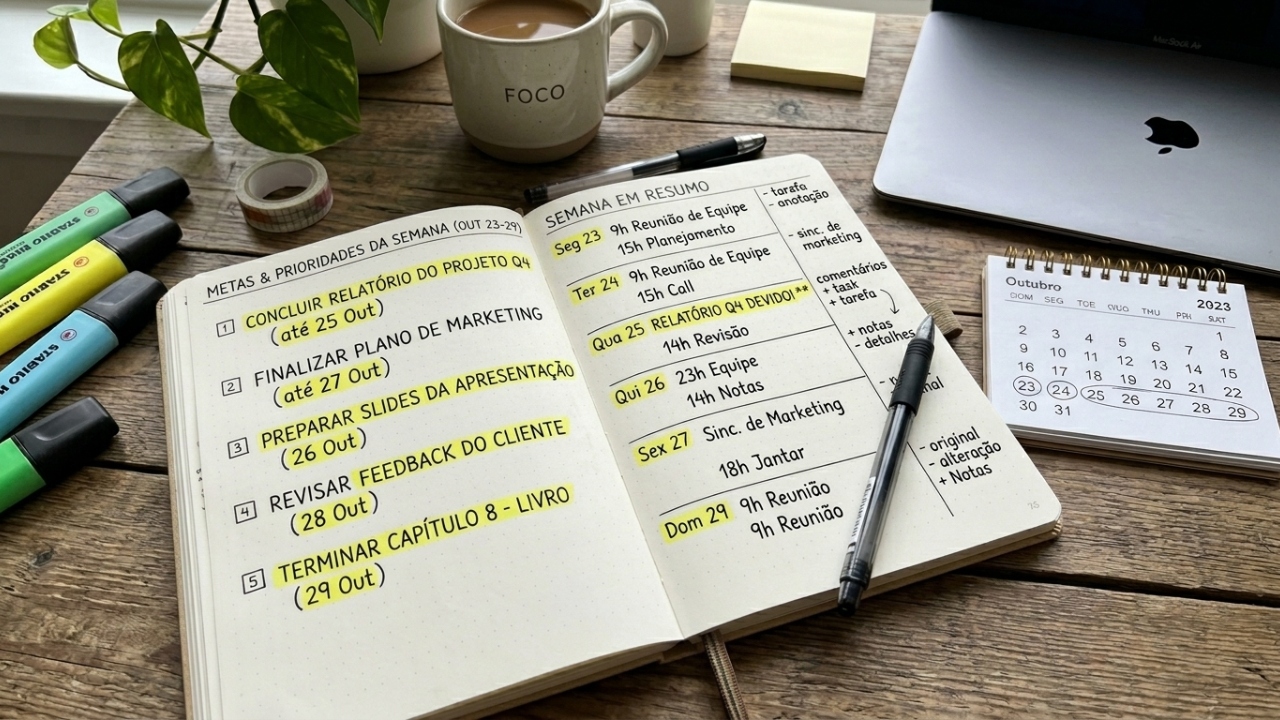 FOCO
MacBook Air
METAS & PRIORIDADES DA SEMANA (OUT 23-29)
1 CONCLUIR RELATÓRIO DO PROJETO Q4
(até 25 Out)
2 FINALIZAR PLANO DE MARKETING
(até 27 Out)
3 PREPARAR SLIDES DA APRESENTAÇÃO
(26 Out)
4 REVISAR FEEDBACK DO CLIENTE
(28 Out)
5 TERMINAR CAPÍTULO 8 - LIVRO
(29 Out)
SEMANA EM RESUMO
Seg 23 9h Reunião de Equipe
15h Planejamento
Ter 24 9h Reunião de Equipe
15h Call
Qua 25 RELATÓRIO Q4 DEVIDO! **
14h Revisão
Qui 26 23h Equipe
14h Notas
Sex 27 Sinc. de Marketing
18h Jantar
Dom 29 9h Reunião
9h Reunião
- tarefa
- anotação
- sinc. de
marketing
comentários
+ task
+ tarefa
+ notas
- detalhes
- original
- alteração
+ Notas
Outubro
2023
DOM SEG TOE TMU
1
2 3 4 5 6 7 8
9 10 11 12 13 14 15
16 17 18 19 20 21 22
23 24 25 26 27 28 29
30 31
STABILO
STABILO
STABILO